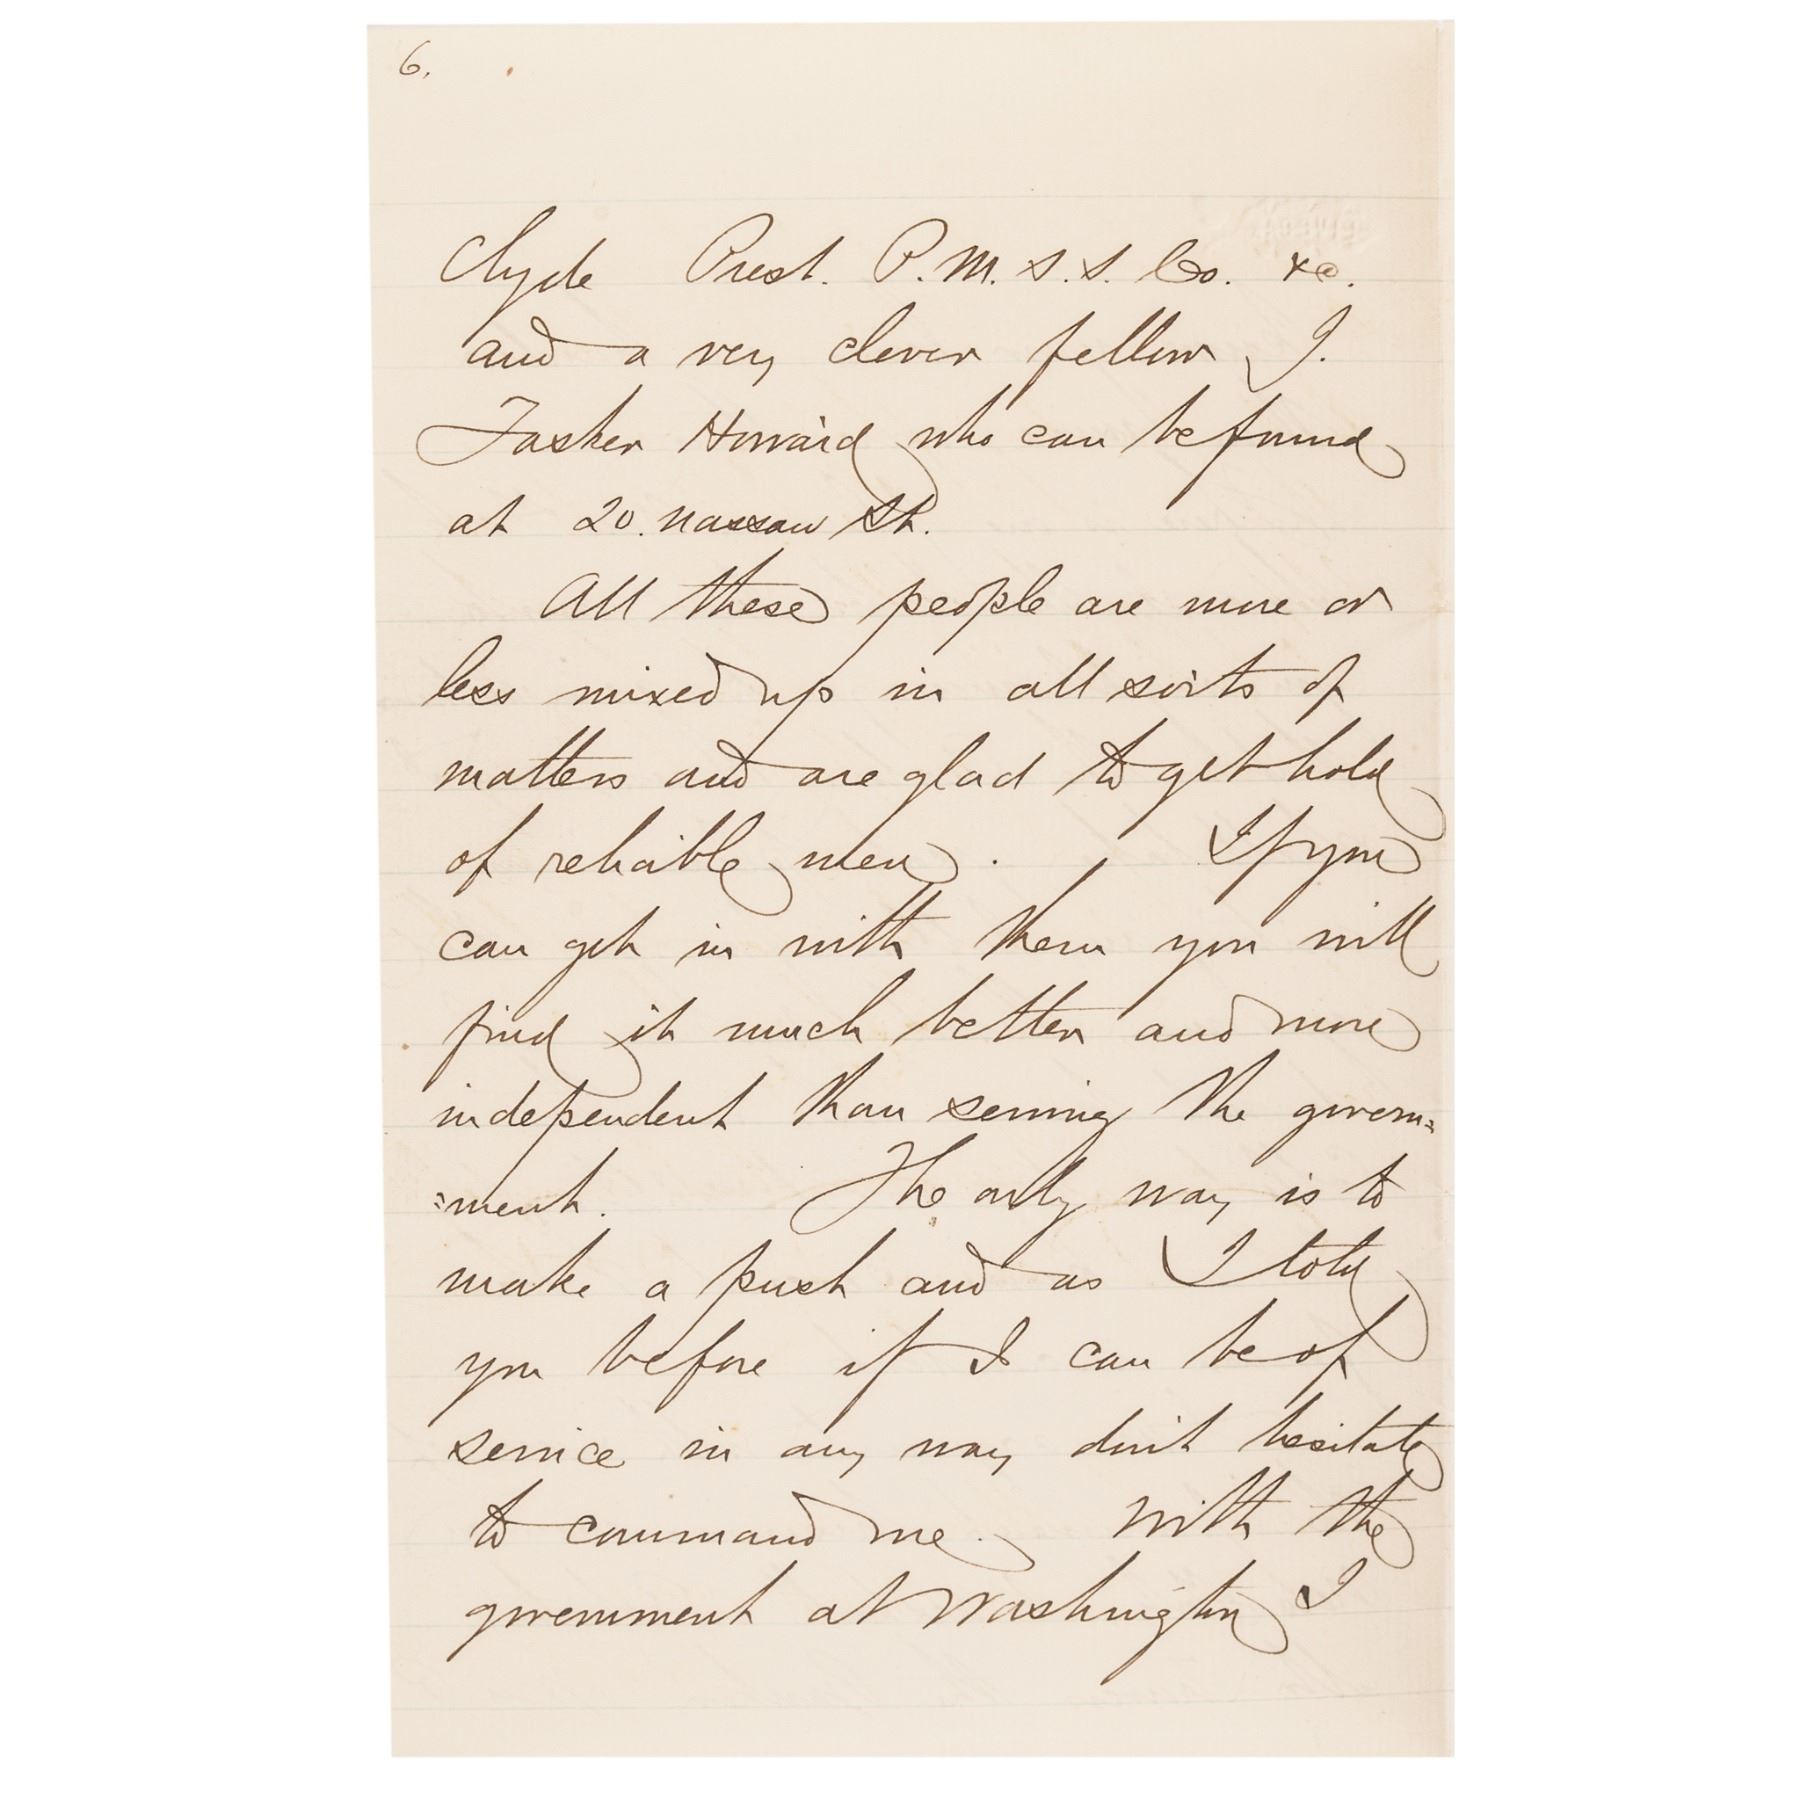 6.
Clyde Prest. P. M. S. S. Co. &c.
and a very clever fellow J.
Tasker Howard who can be found
at 20. Nassau St.
All these people are more or
less mixed up in all sorts of
matters and are glad to get hold
of reliable men. If you
can get in with them you will
find it much better and more
independent than serving the govern=
=ment. The only way is to
make a push and as I told
you before if I can be of
service in any way don't hesitate
to command me. With the
government at Washington I